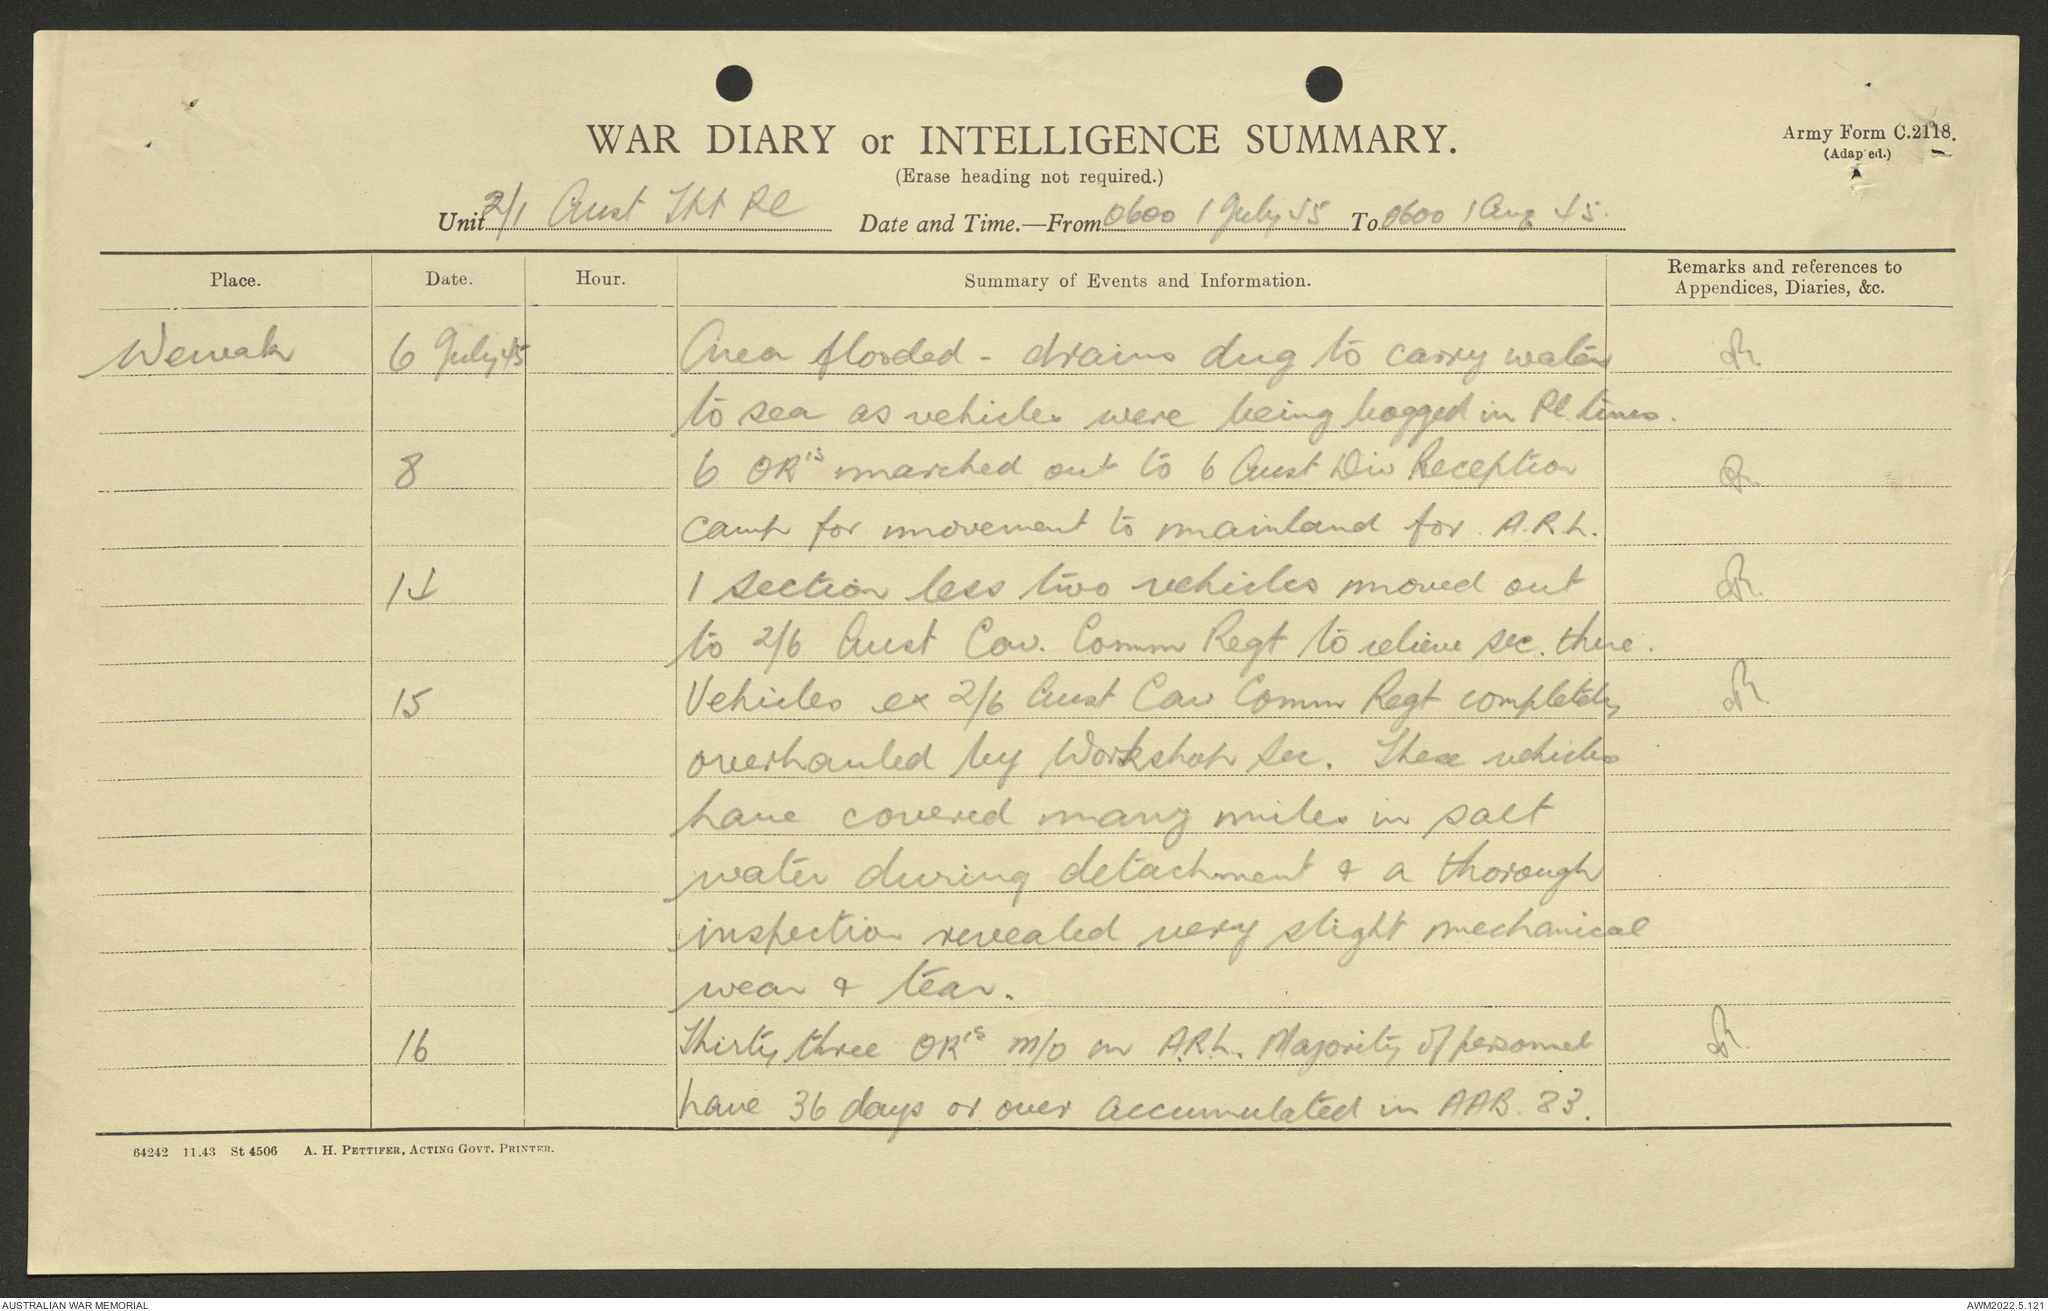 WAR DIARY or INTELLIGENCE SUMMARY.
Army Form C.2118.
(Adap ed.)
(Erase heading not required.)
Unit 2/1 Aust Tpt Pl Date and Time.—From 0600 1 July 45 To 0600 1 Aug 45.
Place. Date. Hour. Summary of Events and Information. Remarks and references to Appendices, Diaries, &c.
Wewak 6 July 45 Area flooded - drains dug to carry water
to sea as vehicles were being bogged in Pl. lines.
8 6 OR's marched out to 6 Aust Div Reception
camp for movement to mainland for A.R.L.
14 1 section less two vehicles moved out
to 2/6 Aust Cav. Comm Regt to relieve sec. there.
15 Vehicles ex 2/6 Aust Cav Comm Regt completely
overhauled by Workshop Sec. These vehicles
have covered many miles in salt
water during detachment & a thorough
inspection revealed very slight mechanical
wear & tear.
16 Thirty three OR's m/o on A.R.L. Majority of personnel
have 36 days or over accumulated in AAB. 83.
64242 11.43 St 4506 A. H. PETTIFER, ACTING GOVT. PRINTER.
AUSTRALIAN WAR MEMORIAL
AWM2022.5.121